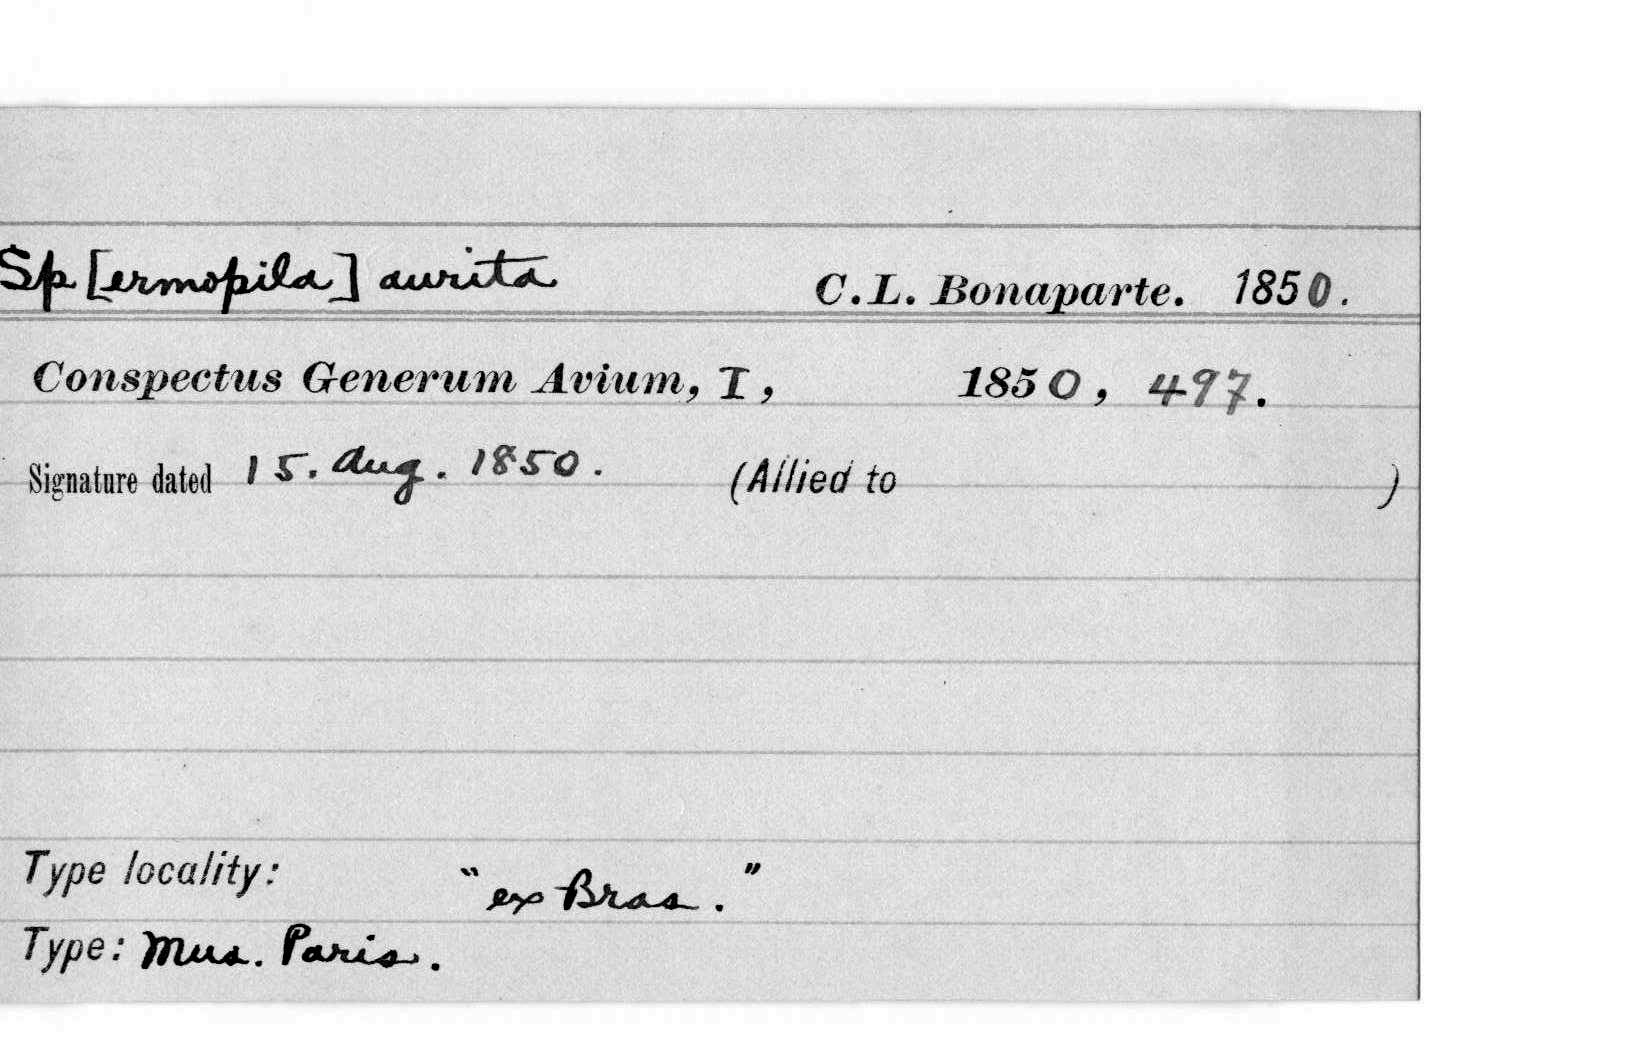 Sp[ermopila] aurita C.L. Bonaparte. 1850.
Conspectus Generum Avium, I, 1850, 497.
Signature dated 15. Aug. 1850. (Allied to )
Type locality: "ex Bras."
Type: Mus. Paris.